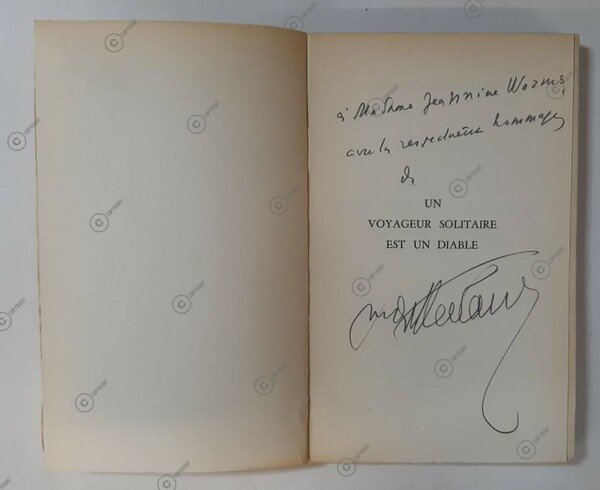 à Madame Jeannine Worms,
avec les respectueux hommages
de
UN
VOYAGEUR SOLITAIRE
EST UN DIABLE
Montherlant
© COPYRIGHT